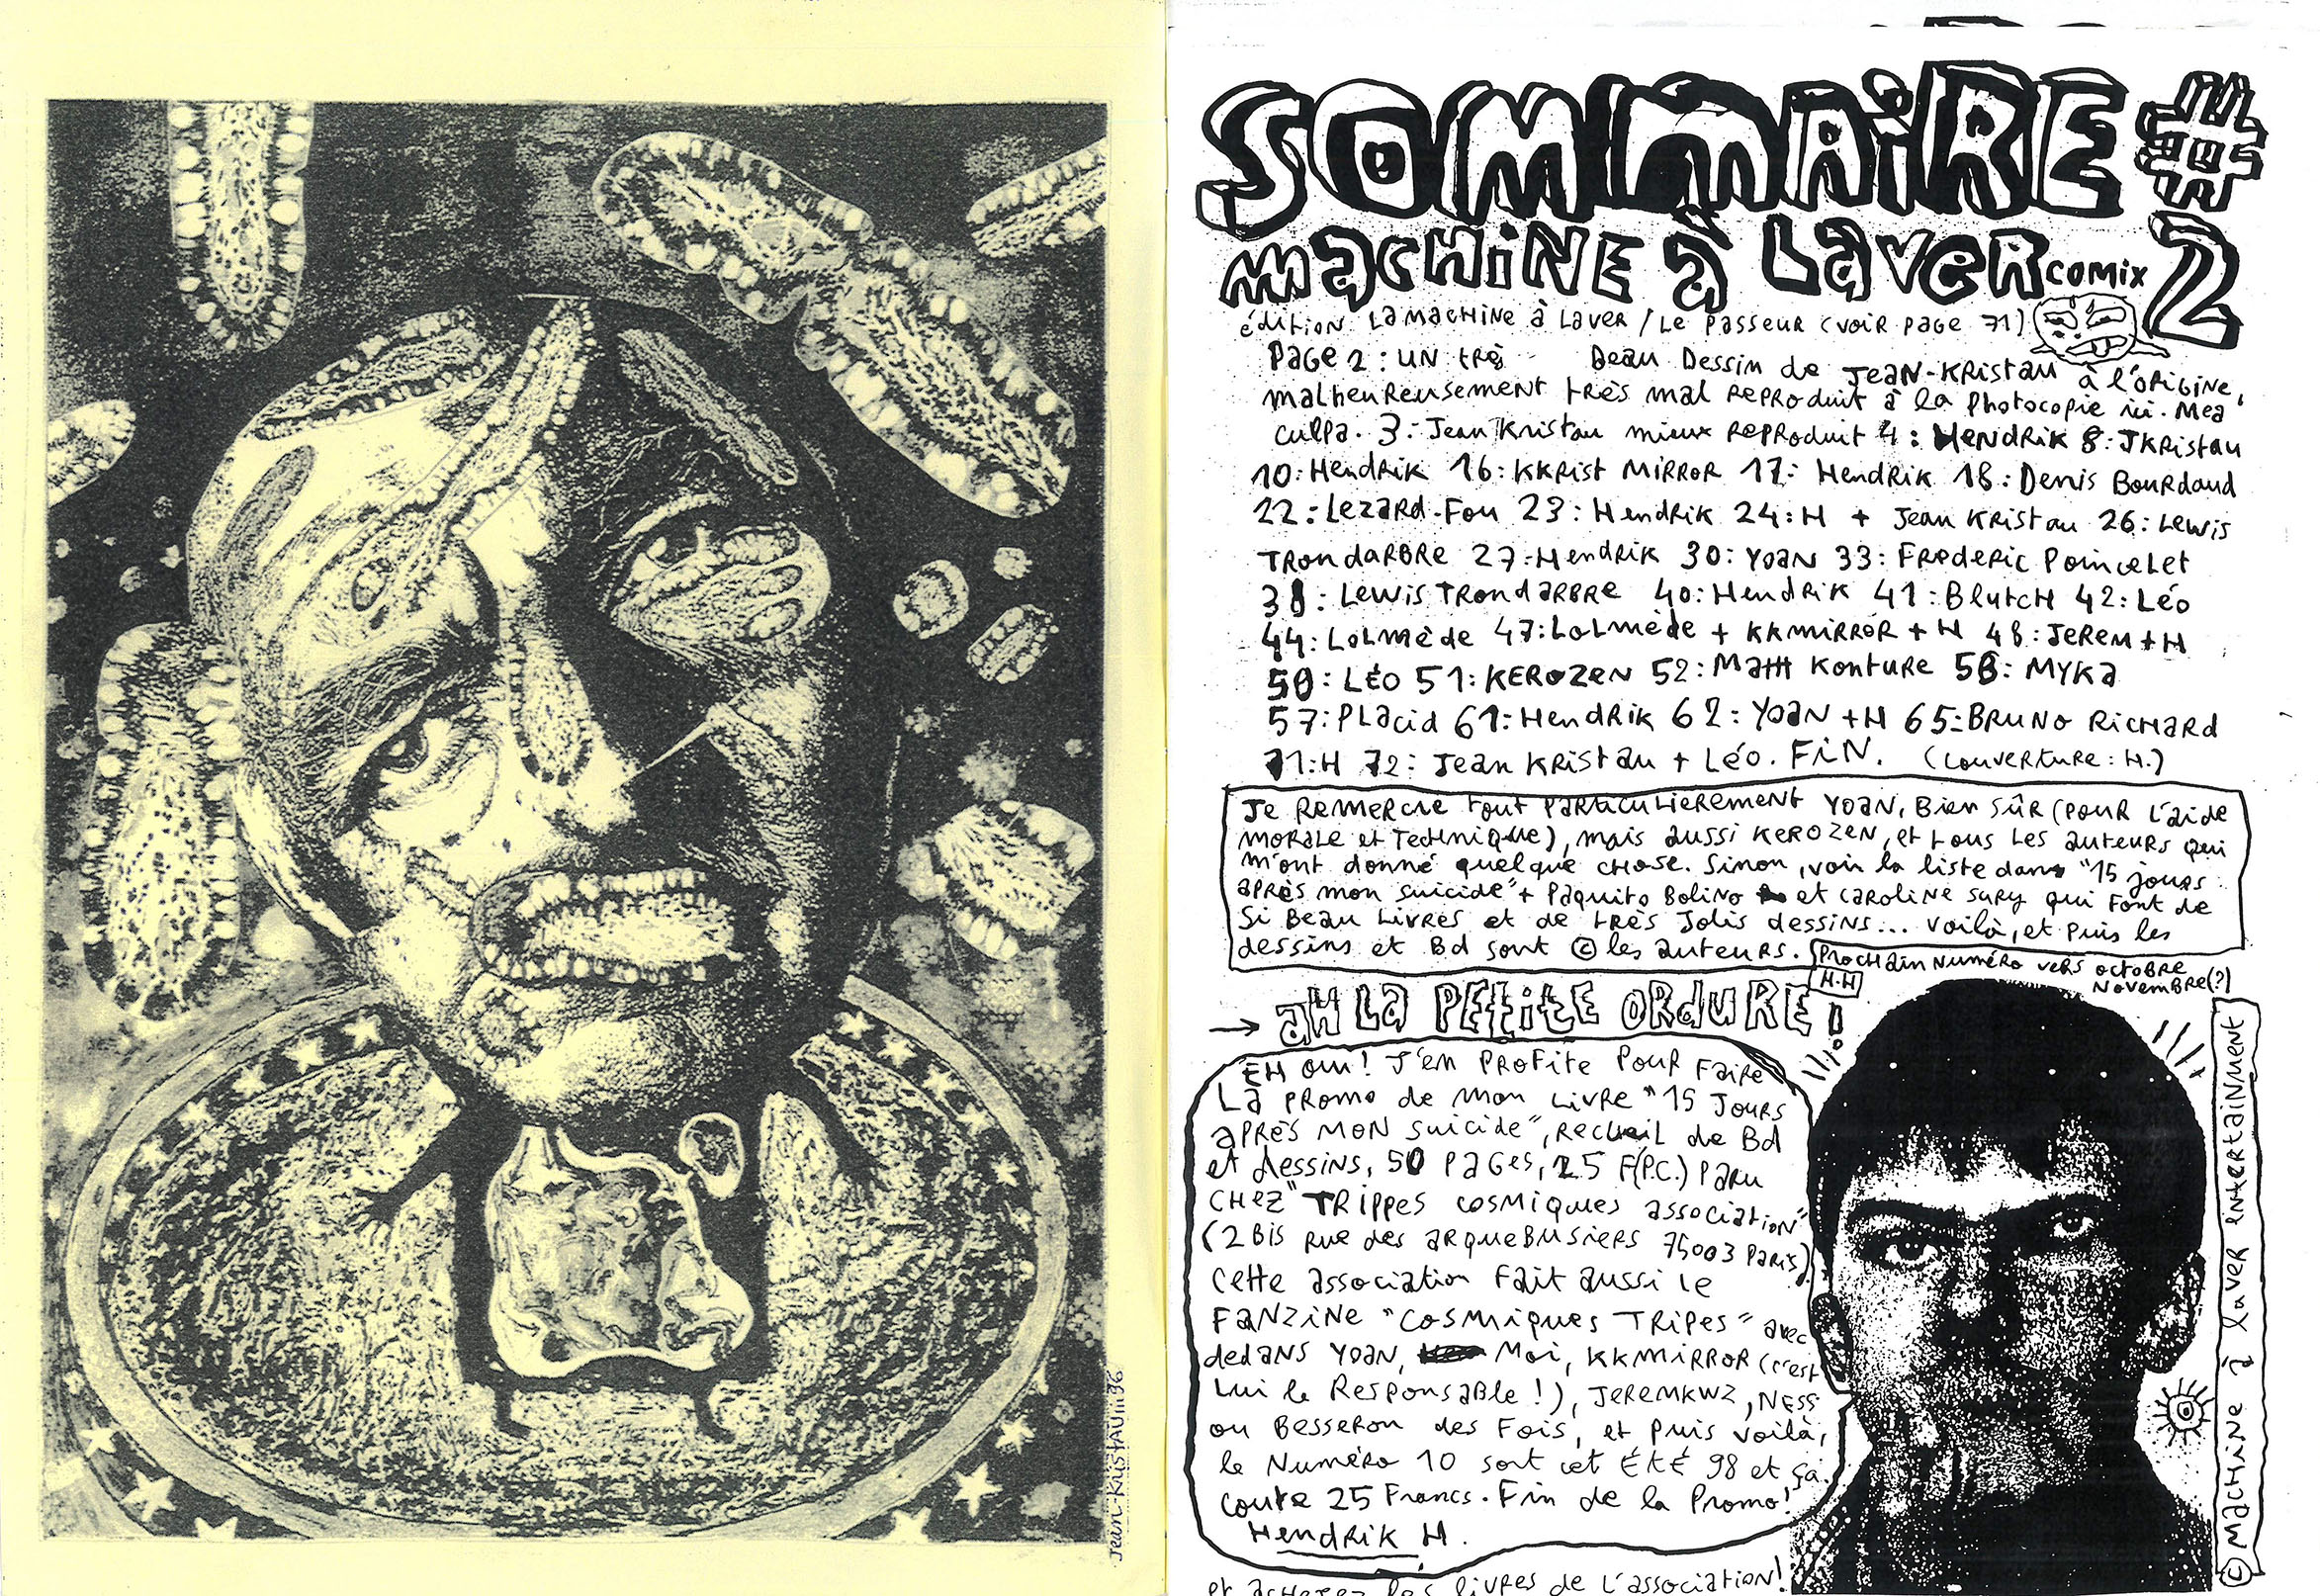 Jean-Kristau 96
SOMMAIRE #
MACHINE à LAVER COMIX 2
édition: La machine à laver / Le Passeur (voir page 71)
Page 2 : un très beau dessin de Jean-Kristau à l'origine,
malheureusement très mal reproduit à la photocopie ici. Mea
culpa. 3: Jean Kristau mieux reproduit 4: Hendrik 8: JKristau
10: Hendrik 16: KKrist Mirror 17: Hendrik 18: Denis Bourdaud
22: Lezard-Fou 23: Hendrik 24: H + Jean Kristau 26: Lewis
Trondarbre 27: Hendrik 30: Yoan 33: Frederic Poincelet
38: Lewis Trondarbre 40: Hendrik 41: Blutch 42: Léo
44: Lolmède 47: Lolmède + KKmirror + H 48: Jerem + H
50: Léo 51: Kerozen 52: Matt Konture 56: Myka
57: Placid 61: Hendrik 62: Yoan + H 65: Bruno Richard
71: H 72: Jean Kristau + Léo. Fin. (couverture : H.)
Je remercie tout particulierement Yoan, bien sûr (pour l'aide
morale et technique), mais aussi Kerozen, et tous les auteurs qui
m'ont donné quelque chose. Sinon, voir la liste dans "15 jours
après mon suicide" + Paquito Bolino et Caroline Sury qui font de
si beau livres et de très jolis dessins... voilà, et puis les
dessins et Bd sont © les auteurs.
H.H
Prochain numéro vers octobre
Novembre(?)
→ aH La Petite Ordure !
Eh oui ! J'en profite pour faire
la promo de mon livre "15 jours
après mon suicide", recueil de Bd
et dessins, 50 pages, 25 F(P.C.) paru
chez "Trippes cosmiques association"
(2 bis rue des arquebusiers 75003 Paris).
Cette association fait aussi le
fanzine "Cosmiques Tripes" avec
dedans Yoan, Moi, KKmirror (c'est
lui le responsable !), Jeremkwz, Ness
ou Besseron des fois, et puis voilà,
le numéro 10 sort cet été 98 et ça
coute 25 Francs. Fin de la promo!
Hendrik H.
et achetez les livres de l'association!
© Machine à laver intertainment